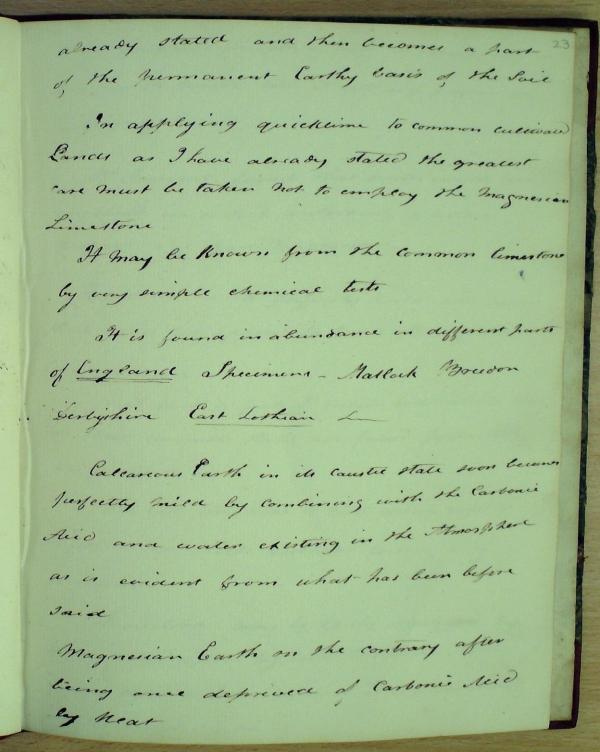 23
already stated and then becomes a part
of the permanent Earthy basis of the Soil
In applying quicklime to common cultivated
Lands as I have already stated the greatest
care must be taken not to employ the Magnesian
Limestone
It may be known from the common limestone
by very simple chemical tests
It is found in abundance in different parts
of England Specimens - Matlock Breedon
Derbyshire East Lothian
Calcareous Earth in its caustic state soon becomes
perfectly mild by combining with the Carbonic
Acid and water existing in the Atmosphere
as is evident from what has been before
said
Magnesian Earth on the contrary after
being once deprived of Carbonic Acid
by Heat